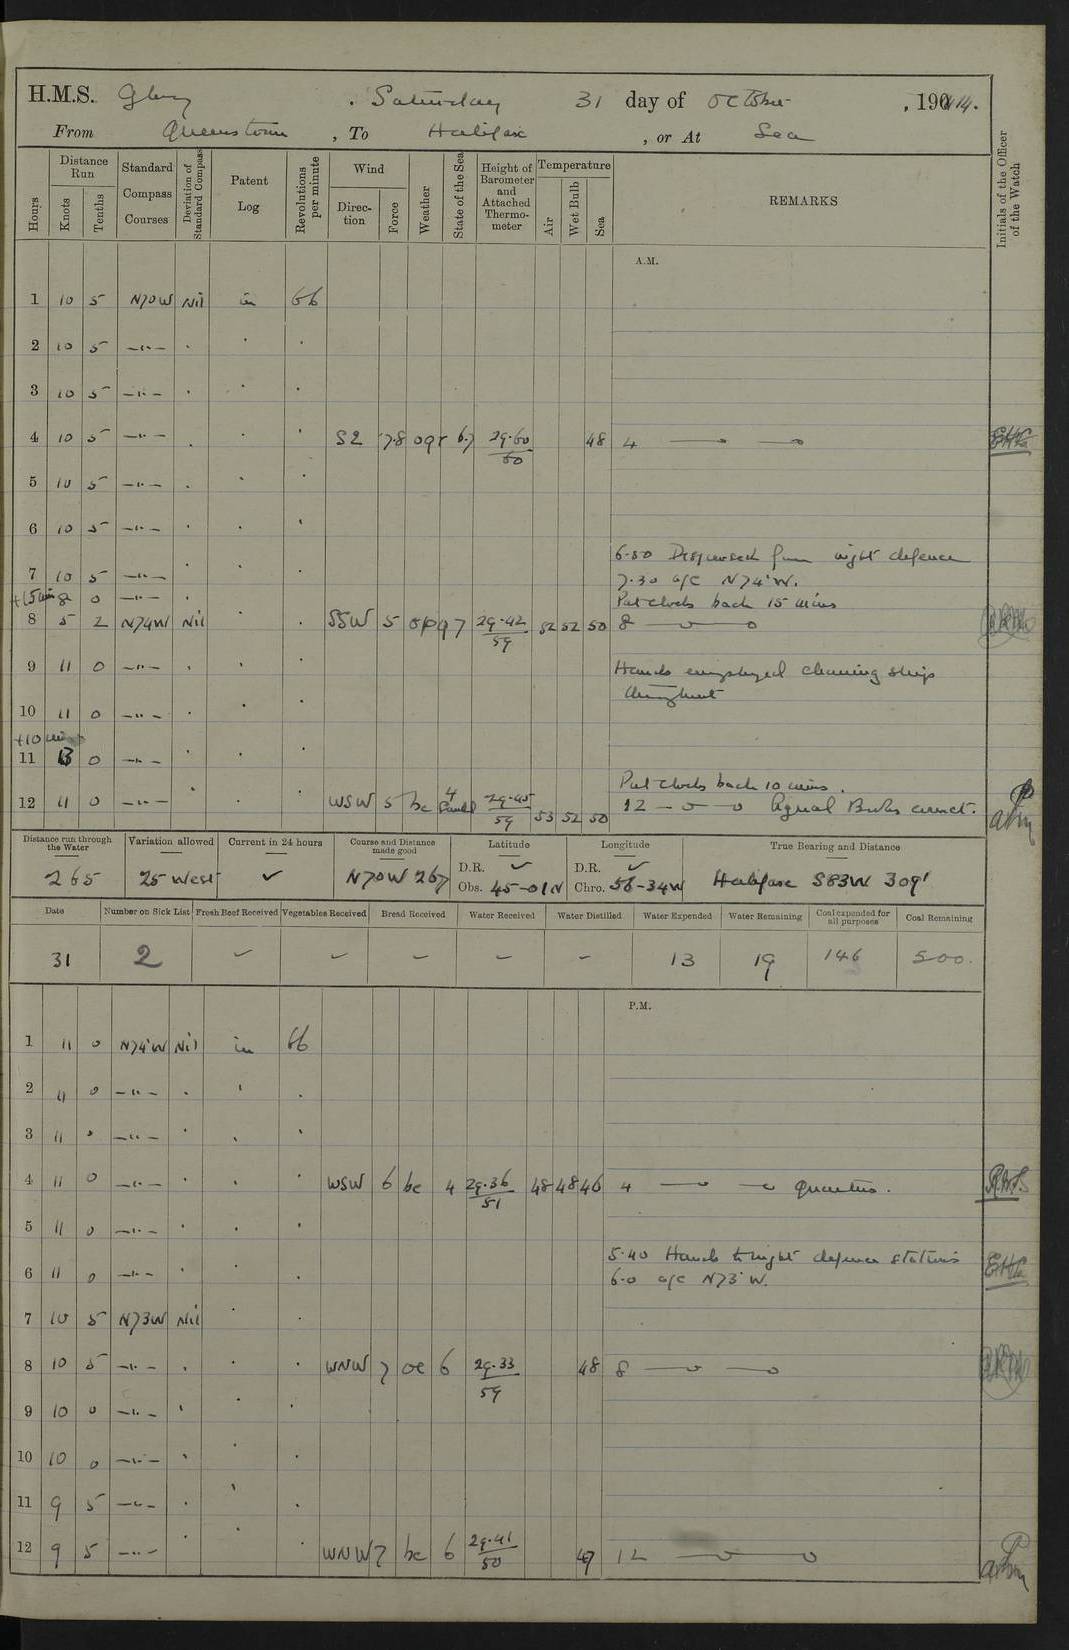 H.M.S. Glory . Saturday 31 day of October , 1914.
From Queenstown , To Halifax , or At Sea
Hours
Distance Run
Knots
Tenths
Standard Compass Courses
Deviation of Standard Compass
Patent Log
Revolutions per minute
Wind
Direction
Force
Weather
State of the Sea
Height of Barometer and Attached Thermometer
Temperature
Air
Wet Bulb
Sea
REMARKS
Initials of the Officer of the Watch
A.M.
1 10 5 N70W Nil in 66
2 10 5 —"—
3 10 5 —"—
4 10 5 —"— 7.8 oqr 6.7 29.60 / 60 48 4
5 10 5 —"—
6 10 5 —"—
6.50 Dispersed from night defence
7 10 5 —"— 7.30 a/c N74°W.
+15 min 8 0 —"— Put clocks back 15 mins
8 5 2 N74W Nil SSW 5 opq 7 29.42 / 59 52 52 50 8
9 11 0 —"— Hands employed cleaning ship
throughout
10 11 0 —"—
+10 min
11 13 0 —"—
Put clocks back 10 mins.
12 11 0 —"— WSW 5 bc 4 29.45 / 59 53 52 50 12
Distance run through the Water
Variation allowed
Current in 24 hours
Course and Distance made good
Latitude
Longitude
True Bearing and Distance
D.R. ✓ D.R. ✓
265 25 West ✓ N70W 267 Obs. 45-01N Chro. 56-34W Halifax S83W 309'
Date
Number on Sick List
Fresh Beef Received
Vegetables Received
Bread Received
Water Received
Water Distilled
Water Expended
Water Remaining
Coal expended for all purposes
Coal Remaining
31 2 – – – – – 13 19 146 500.
P.M.
1 11 0 N74°W Nil in 66
2 11 0 —"—
3 11 0 —"—
4 11 0 —"— WSW 6 bc 4 29.36 / 51 48 48 46 4 quarters.
5 11 0 —"—
5.40 Hands to night defence stations
6 11 0 —"— 6.0 a/c N73°W.
7 10 5 N73W Nil
8 10 5 —"— WNW 7 oc 6 29.33 / 59 48 8
9 10 0 —"—
10 10 0 —"—
11 9 5 —"—
12 9 5 —"— WNW 7 bc 6 29.41 / 50 47 12